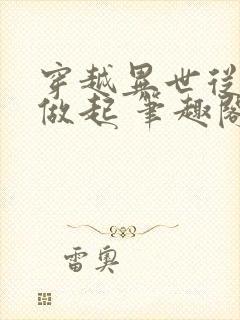 穿越異世從
做起 筆趣閣
雷奧